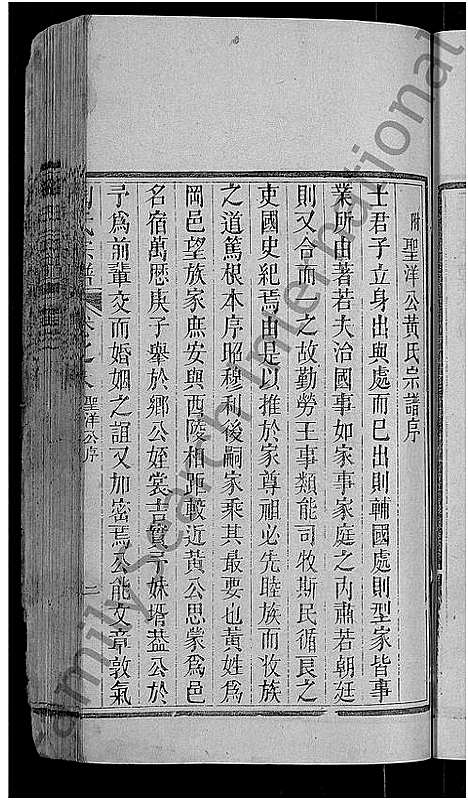 附
聖洋公黃氏宗譜序
士君子立身出與處而已出則輔國處則型家皆事
業所由著若夫治國事如家事家庭之內肅若朝廷
則又合而一之故勤勞王事類能司牧斯民循良之
吏國史紀焉由是以推於家尊祖必先睦族而收族
之道篤根本序昭穆利後嗣家乘其最要也黃姓爲
岡邑望族家庶安與西陵相距較近黃公思蒙爲邑
名宿萬歷庚子舉於鄉公姪裳吉質予妹壻葢公於
予爲前輩交而婚姻之誼又加密焉公能文章敦氣
氏宗譜
卷之
聖洋公序
二
Family Search International